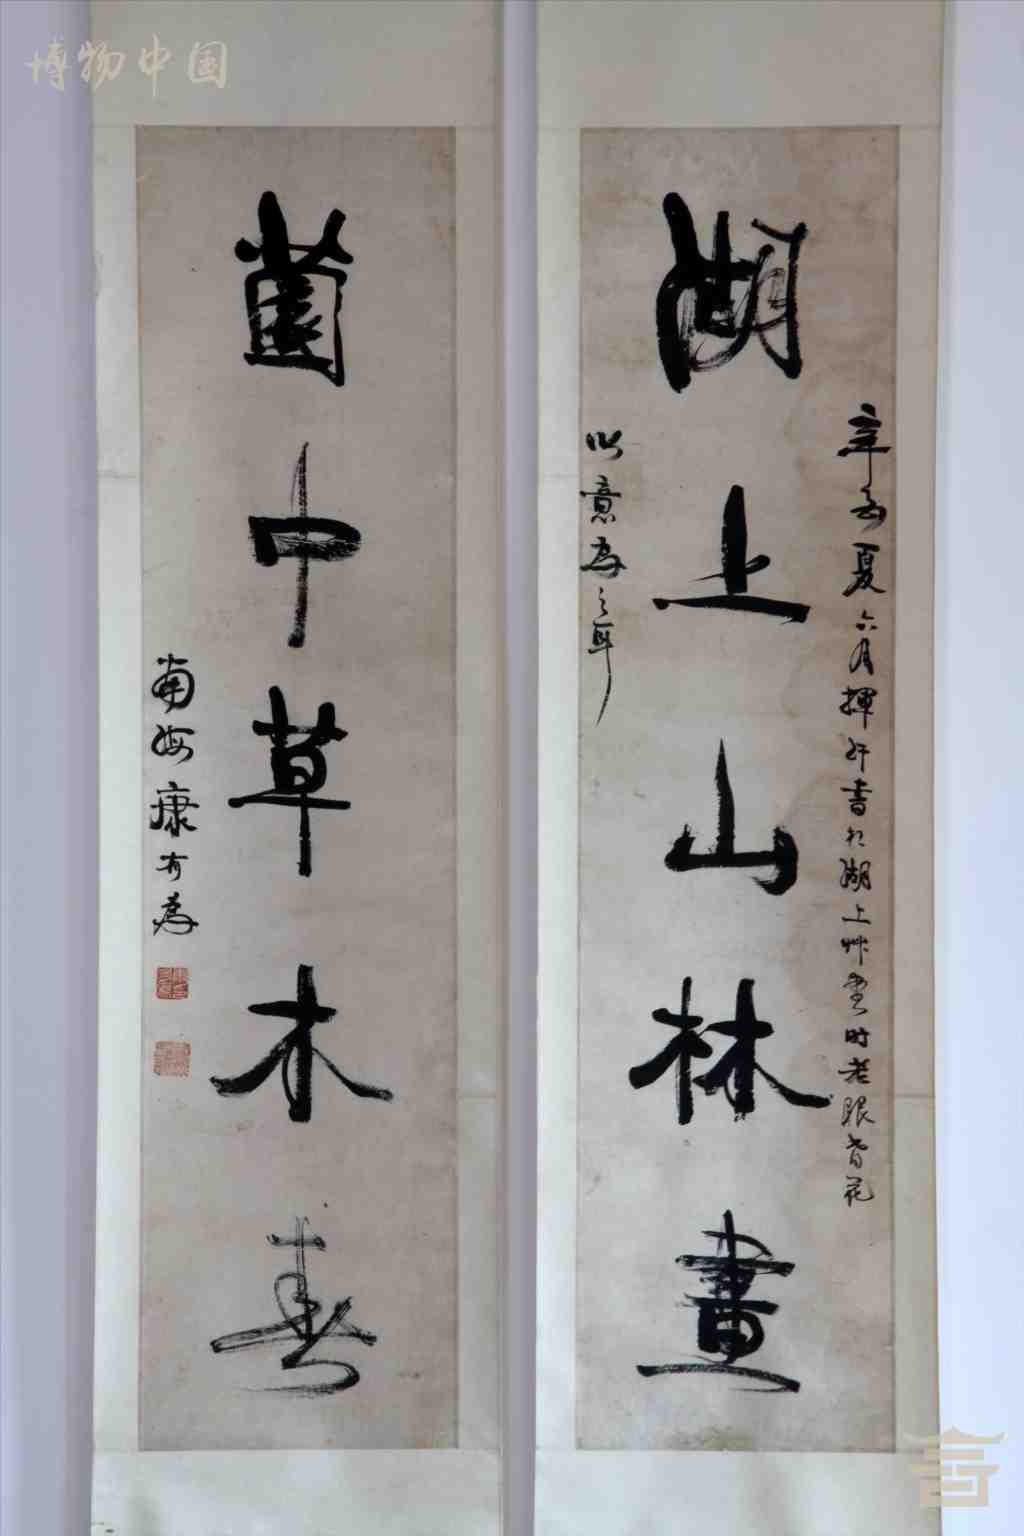 博物中国
湖上山林畫
辛酉夏六月揮汗書於湖上艸堂时老眼昏花
以意為之耳
薗中草木春
南海康有為